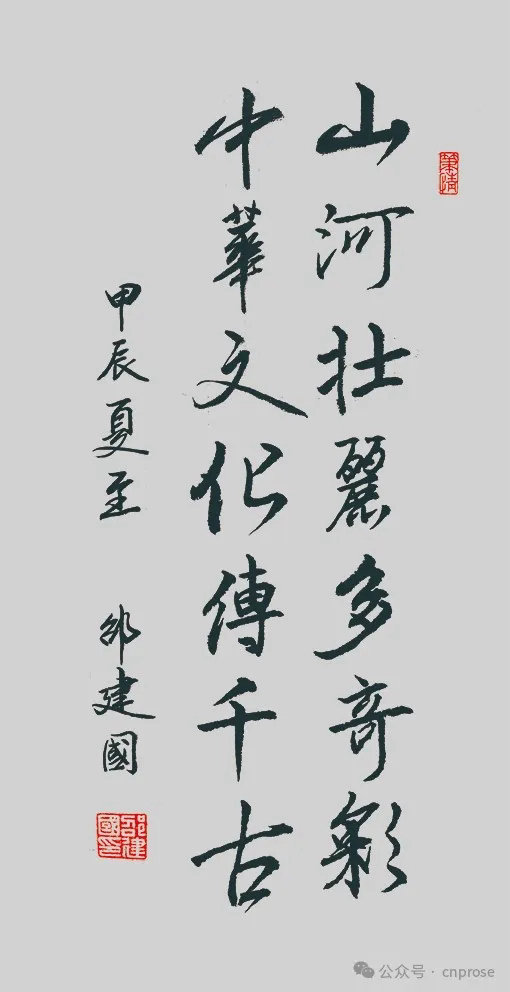 山河壯麗多奇彩
中華文化傳千古
甲辰夏至 邵建國
邵建國印
公众号 · cnprose